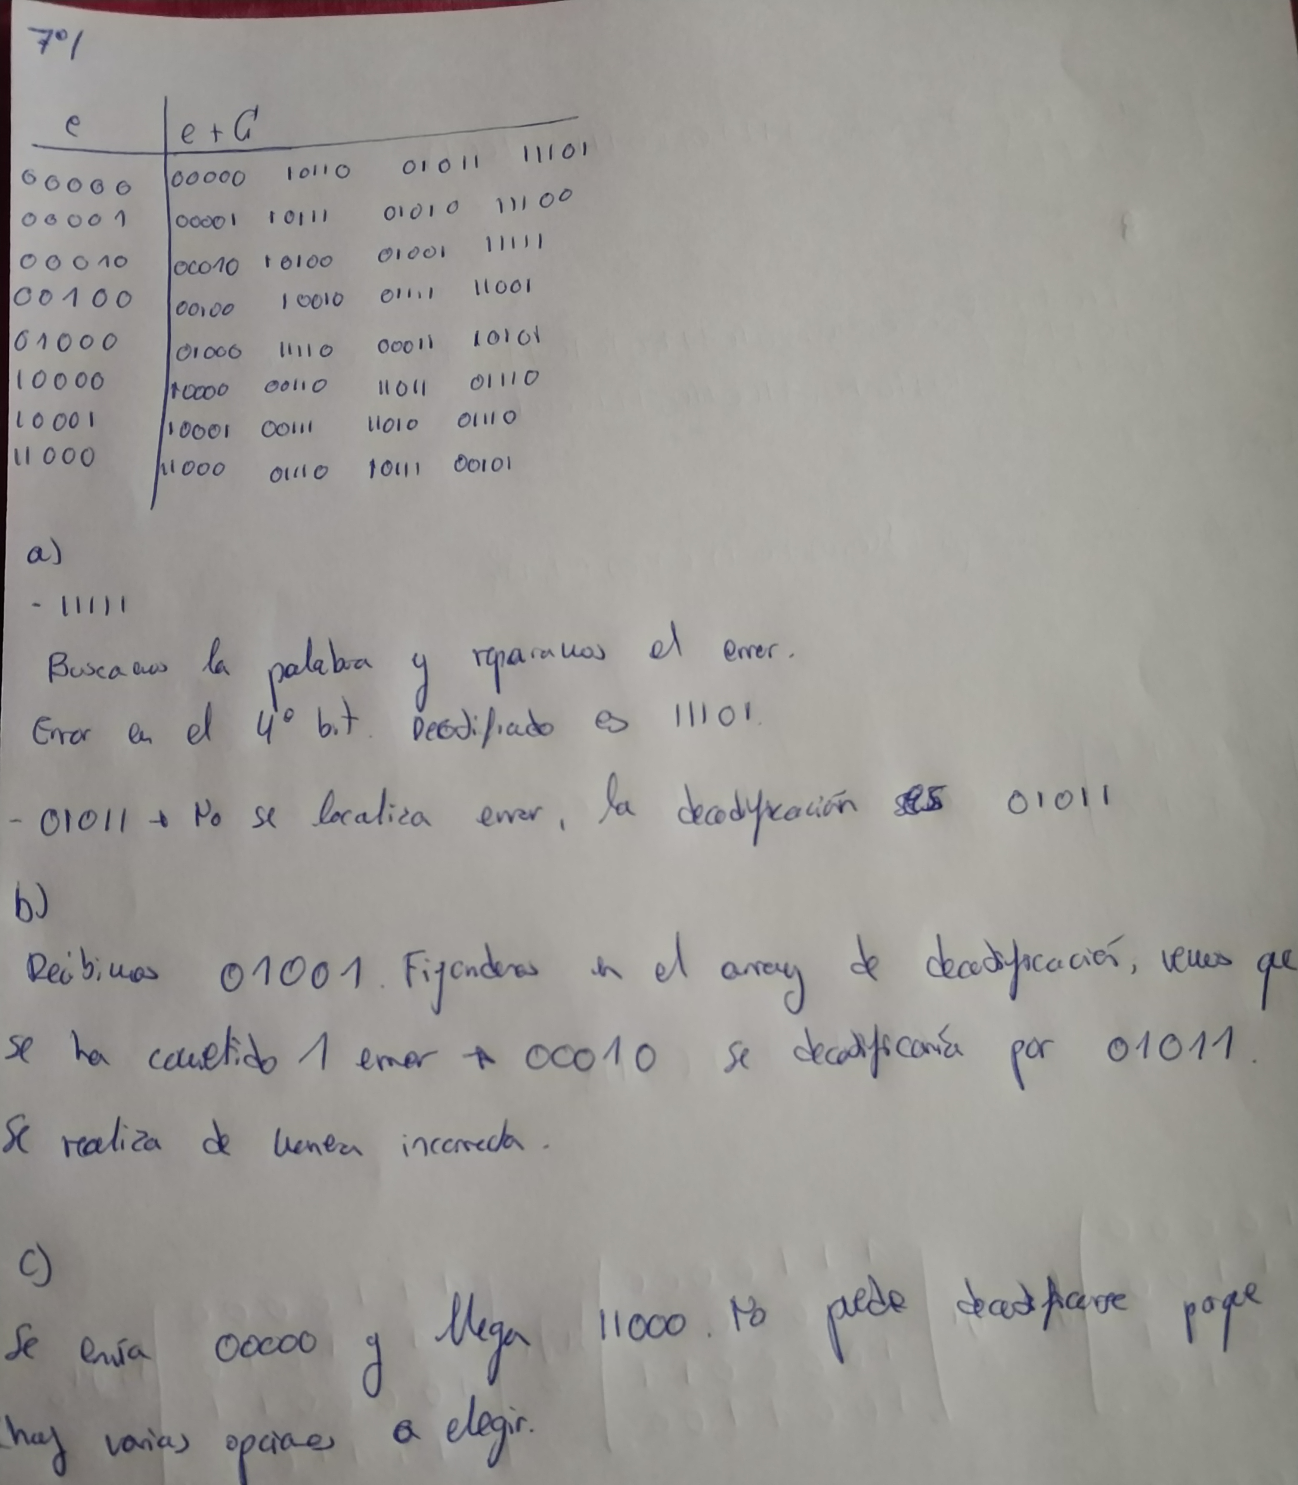 7º/
e | e + C
00000 | 00000 10110 01011 11101
00001 | 00001 10111 01010 11100
00010 | 00010 10100 01001 11111
00100 | 00100 10010 01111 11001
01000 | 01000 11110 00011 10101
10000 | 10000 00110 11011 01110
10001 | 10001 00111 11010 01110
11000 | 11000 01110 10111 00101
a)
- 11111
Buscamos la palabra y reparamos el error.
Error en el 4º bit. Decodificado es 11101.
- 01011 → No se localiza error, la decodificación es 01011
b)
Recibimos 01001. Fijandonos en el array de decodificación, vemos que
se ha cometido 1 error → 00010 se decodificaría por 01011.
Se realiza de manera incorrecta.
c)
Se envía 00000 y llega 11000. No puede decodificarse porque
hay varias opciones a elegir.